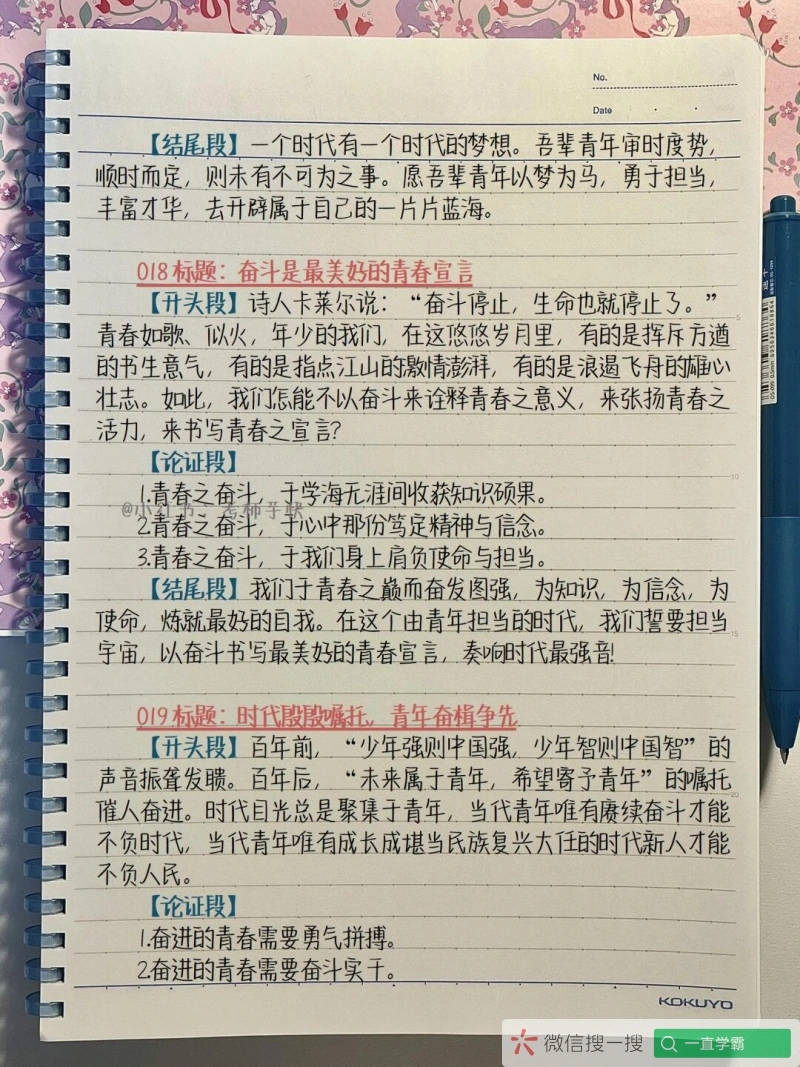 No.
Date
【结尾段】一个时代有一个时代的梦想。吾辈青年审时度势，
顺时而定，则未有不可为之事。愿吾辈青年以梦为马，勇于担当，
丰富才华，去开辟属于自己的一片片蓝海。
018标题：奋斗是最美好的青春宣言
【开头段】诗人卡莱尔说：“奋斗停止，生命也就停止了。”
青春如歌、似火，年少的我们，在这悠悠岁月里，有的是挥斥方遒
的书生意气，有的是指点江山的激情澎湃，有的是浪遏飞舟的雄心
壮志。如此，我们怎能不以奋斗来诠释青春之意义，来张扬青春之
活力，来书写青春之宣言？
【论证段】
1.青春之奋斗，于学海无涯间收获知识硕果。
2.青春之奋斗，于心中那份笃定精神与信念。
3.青春之奋斗，于我们身上肩负使命与担当。
【结尾段】我们于青春之巅而奋发图强，为知识，为信念，为
使命，炼就最好的自我。在这个由青年担当的时代，我们誓要担当
宇宙，以奋斗书写最美好的青春宣言，奏响时代最强音！
019标题：时代殷殷嘱托，青年奋楫争先
【开头段】百年前，“少年强则中国强，少年智则中国智”的
声音振聋发聩。百年后，“未来属于青年，希望寄予青年”的嘱托
催人奋进。时代目光总是聚集于青年，当代青年唯有赓续奋斗才能
不负时代，当代青年唯有成长成堪当民族复兴大任的时代新人才能
不负人民。
【论证段】
1.奋进的青春需要勇气拼搏。
2.奋进的青春需要奋斗实干。
5
10
15
20
KOKUYO
微信搜一搜
一直学霸